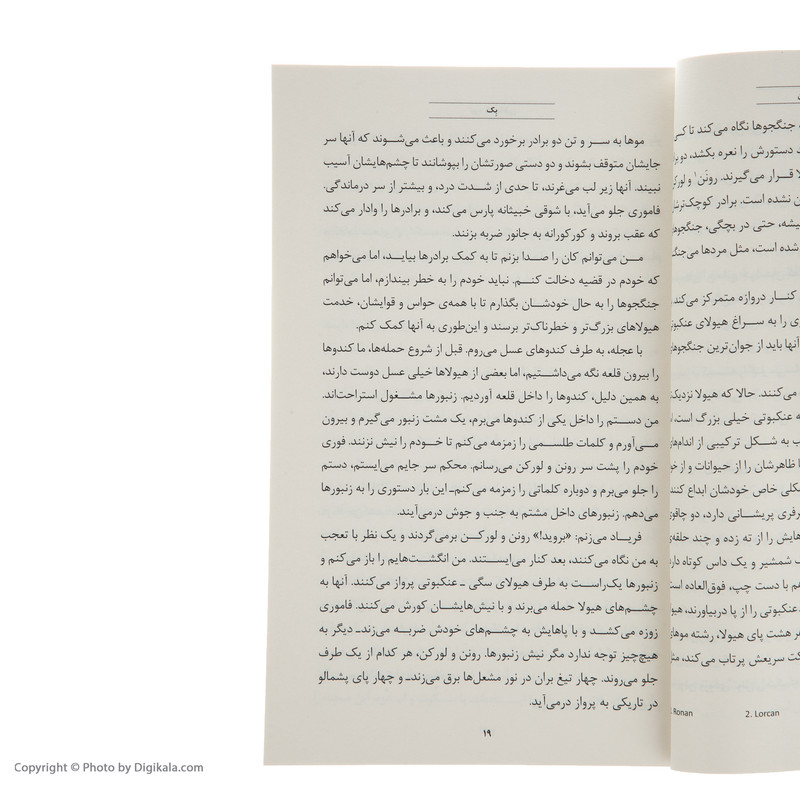 یک
موها به سر و تن دو برادر برخورد می‌کنند و باعث می‌شوند که آنها سر
جایشان متوقف بشوند و دو دستی صورتشان را بپوشانند تا چشم‌هایشان آسیب
نبیند. آنها زیر لب می‌غرند، تا حدی از شدت درد، و بیشتر از سر درماندگی.
فاموری جلو می‌آید، با شوقی خبیثانه پارس می‌کند، و برادرها را وادار می‌کند
که عقب بروند و کورکورانه به جانور ضربه بزنند.
من می‌توانم کان را صدا بزنم تا به کمک برادرها بیایـد، اما می‌خواهم
که خودم در قضیه دخالت کنم. نباید خودم را به خطر بیندازم، اما می‌توانم
جنگجوها را به حال خودشان بگذارم تا با همه‌ی حواس و قوایشان، خدمت
هیولاهای بزرگ‌تر و خطرناک‌تر برسند و این‌طوری به آنها کمک کنم.
با عجله، به طرف کندوهای عسل می‌روم. قبل از شروع حمله‌ها، ما کندوها
را بیرون قلعه نگه می‌داشتیم، اما بعضی از هیولاها خیلی عسل دوست دارند،
به همین دلیل، کندوها را داخل قلعه آوردیم. زنبورها مشغول استراحت‌اند.
من دستم را داخل یکی از کندوها می‌برم، یک مشت زنبور می‌گیرم و بیرون
می‌آورم و کلمات طلسمی را زمزمه می‌کنم تا خودم را نیش نزنند. فوری
خودم را پشت سر رونن و لورکن می‌رسانم. محکم سر جایم می‌ایستم، دستم
را جلو می‌برم و دوباره کلماتی را زمزمه می‌کنم ـ این بار دستوری را به زنبورها
می‌دهم. زنبورهای داخل مشتم به جنب و جوش درمی‌آیند.
فریاد می‌زنم: «بروید!» رونن و لورکن برمی‌گردند و یک نظر با تعجب
به من نگاه می‌کنند، بعد کنار می‌ایستند. من انگشت‌هایم را باز می‌کنم و
زنبورها یک‌راست به طرف هیولای سگی ـ عنکبوتی پرواز می‌کنند. آنها به
چشم‌های هیولا حمله می‌برند و با نیش‌هایشان کورش می‌کنند. فاموری
زوزه می‌کشد و با پاهایش به چشم‌های خودش ضربه می‌زند ـ دیگر به
هیچ‌چیز توجه ندارد مگر نیش زنبورها. رونن و لورکن، هر کدام از یک طرف
جلو می‌روند. چهار تیغ بران در نور مشعل‌ها برق می‌زند ـ و چهار پای پشمالو
در تاریکی به پرواز درمی‌آید.
۱۹
جنگجوها نگاه می‌کند تا
دستورش را نعره بکشد، دو
قرار می‌گیرند. رونن۱ و
ن نشده است. برادر
حتی در بچگی، جنگجو
شده است، مثل مردها
کنار دروازه متمرکز می‌کند
را به سراغ هیولای
آنها باید از جوان‌ترین
می‌کنند. حالا که هیولا
عنکبوتی خیلی بزرگ است
به شکل ترکیبی از
ظاهرشان را از حیوانات و از
خاص خودشان ابداع
پریشانی دارد، دو
را از ته زده و چند
شمشیر و یک داس کوتاه
با دست چپ، فوق‌العاده
عنکبوتی را از پا دربیاورند،
هشت پای هیولا، رشته
سریعش پرتاب می‌کند،
Ronan 2. Lorcan
Copyright © Photo by Digikala.com